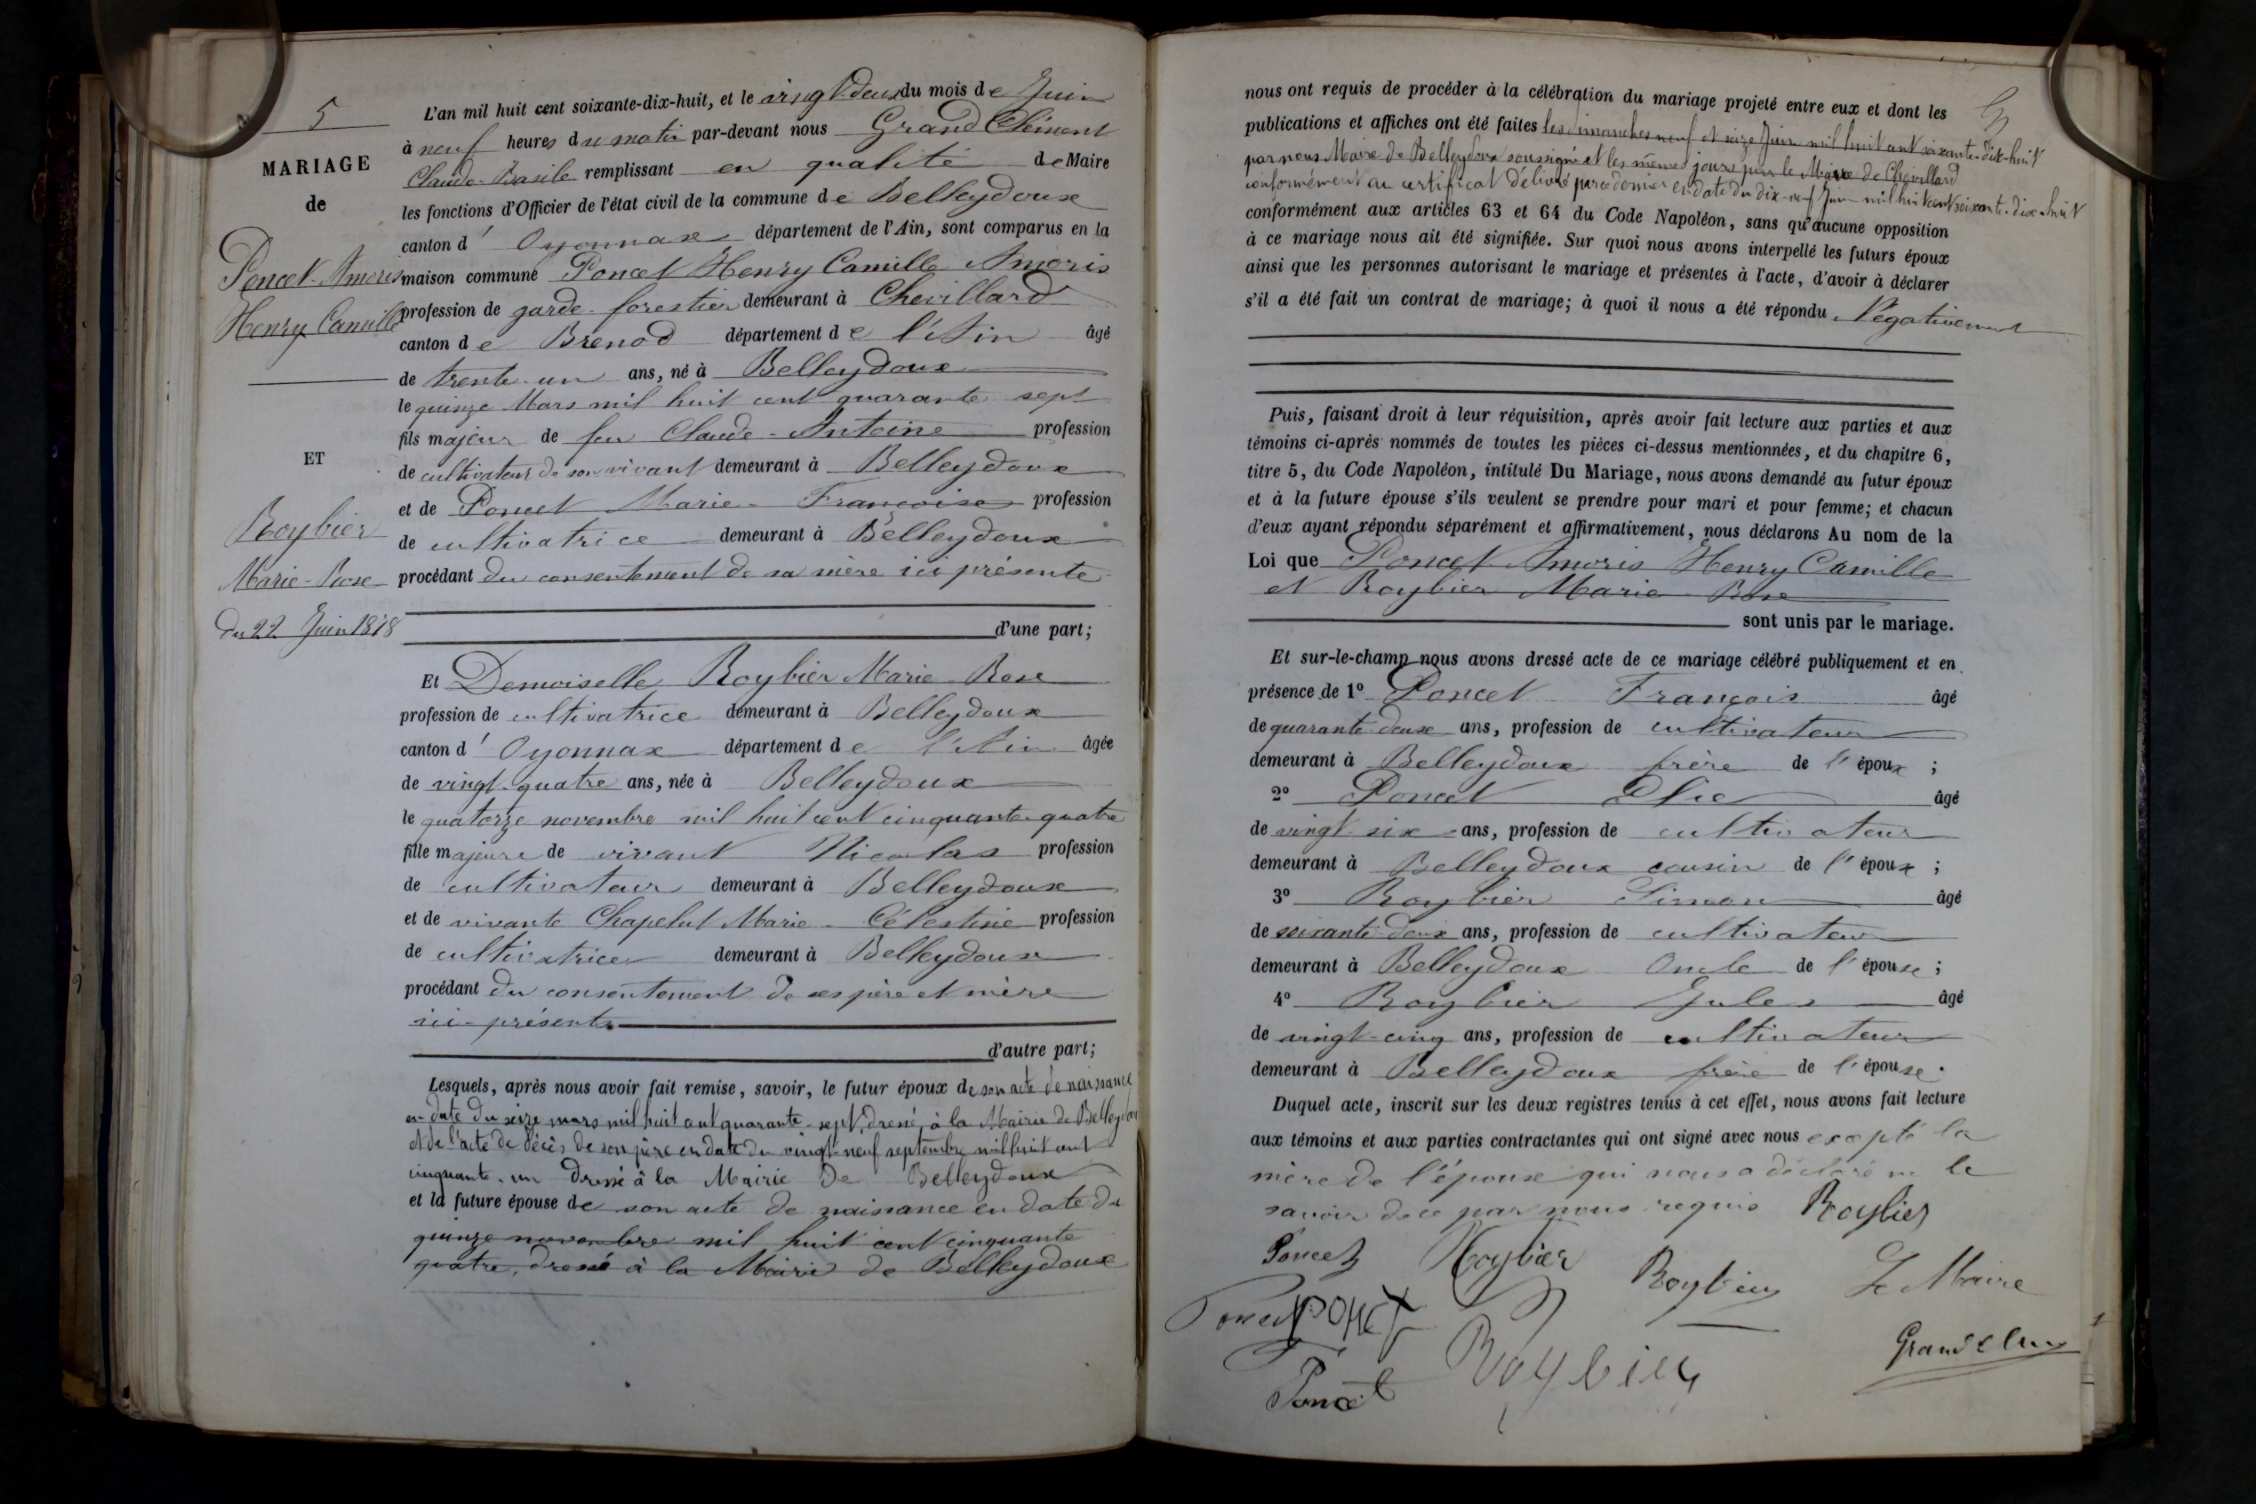 N° 5
MARIAGE
de
Poncet Amoris
Henry Camille
ET
Roybier
Marie-Rose
du 22 Juin 1878
L'an mil huit cent soixante-dix-huit, et le vingt-deux du mois de Juin
à neuf heures du matin par-devant nous Grand Clément
Claude-Basile remplissant en qualité de Maire
les fonctions d'Officier de l'état civil de la commune de Belleydoux
canton d' Oyonnax département de l'Ain, sont comparus en la
maison commune Poncet Henry Camille Amoris
profession de garde-forestier demeurant à Chevillard
canton de Brenod département de l'Ain âgé
de trente-un ans, né à Belleydoux
le quinze Mars mil huit cent quarante sept
fils majeur de feu Claude-Antoine profession
de cultivateur de son vivant demeurant à Belleydoux
et de Poncet Marie-Françoise profession
de cultivatrice demeurant à Belleydoux
procédant du consentement de sa mère ici présente
d'une part;
Et Demoiselle Roybier Marie-Rose
profession de cultivatrice demeurant à Belleydoux
canton d' Oyonnax département de l'Ain âgée
de vingt-quatre ans, née à Belleydoux
le quatorze novembre mil huit cent cinquante-quatre
fille majeure de vivant Nicolas profession
de cultivateur demeurant à Belleydoux
et de vivante Chapelut Marie-Célestine profession
de cultivatrice demeurant à Belleydoux
procédant du consentement de ses père et mère
ici-présents
d'autre part;
Lesquels, après nous avoir fait remise, savoir, le futur époux de son acte de naissance
en date du seize mars mil huit cent quarante-sept, dressé à la Mairie de Belleydoux
et de l'acte de décès de son père en date du vingt-neuf septembre mil huit cent
cinquante-un dressé à la Mairie de Belleydoux
et la future épouse de son acte de naissance en date du
quinze novembre mil huit cent cinquante
quatre, dressé à la Mairie de Belleydoux
nous ont requis de procéder à la célébration du mariage projeté entre eux et dont les
publications et affiches ont été faites les dimanches neuf et seize Juin mil huit cent soixante-dix-huit
par nous Maire de Belleydoux soussigné et les mêmes jours par le Maire de Chevillard
conformément au certificat délivré par ce dernier en date du dix-neuf Juin mil huit cent soixante-dix-huit
conformément aux articles 63 et 64 du Code Napoléon, sans qu'aucune opposition
à ce mariage nous ait été signifiée. Sur quoi nous avons interpellé les futurs époux
ainsi que les personnes autorisant le mariage et présentes à l'acte, d'avoir à déclarer
s'il a été fait un contrat de mariage; à quoi il nous a été répondu Négativement
Puis, faisant droit à leur réquisition, après avoir fait lecture aux parties et aux
témoins ci-après nommés de toutes les pièces ci-dessus mentionnées, et du chapitre 6,
titre 5, du Code Napoléon, intitulé Du Mariage, nous avons demandé au futur époux
et à la future épouse s'ils veulent se prendre pour mari et pour femme; et chacun
d'eux ayant répondu séparément et affirmativement, nous déclarons Au nom de la
Loi que Poncet Amoris Henry Camille
et Roybier Marie-Rose
sont unis par le mariage.
Et sur-le-champ nous avons dressé acte de ce mariage célébré publiquement et en
présence de 1° Poncet François âgé
de quarante-deux ans, profession de cultivateur
demeurant à Belleydoux frère de l'époux ;
2° Poncet Elie âgé
de vingt-six ans, profession de cultivateur
demeurant à Belleydoux cousin de l'époux ;
3° Roybier Simon âgé
de soixante-deux ans, profession de cultivateur
demeurant à Belleydoux Oncle de l'épouse ;
4° Roybier Jules âgé
de vingt-cinq ans, profession de cultivateur
demeurant à Belleydoux frère de l'épouse.
Duquel acte, inscrit sur les deux registres tenus à cet effet, nous avons fait lecture
aux témoins et aux parties contractantes qui ont signé avec nous excepté la
mère de l'épouse qui nous a déclaré ne le
savoir de ce par nous requis Roybier
Poncet Roybier Roybier Le Maire
Poncet Poncet
Roybier Grand Clém
Poncet